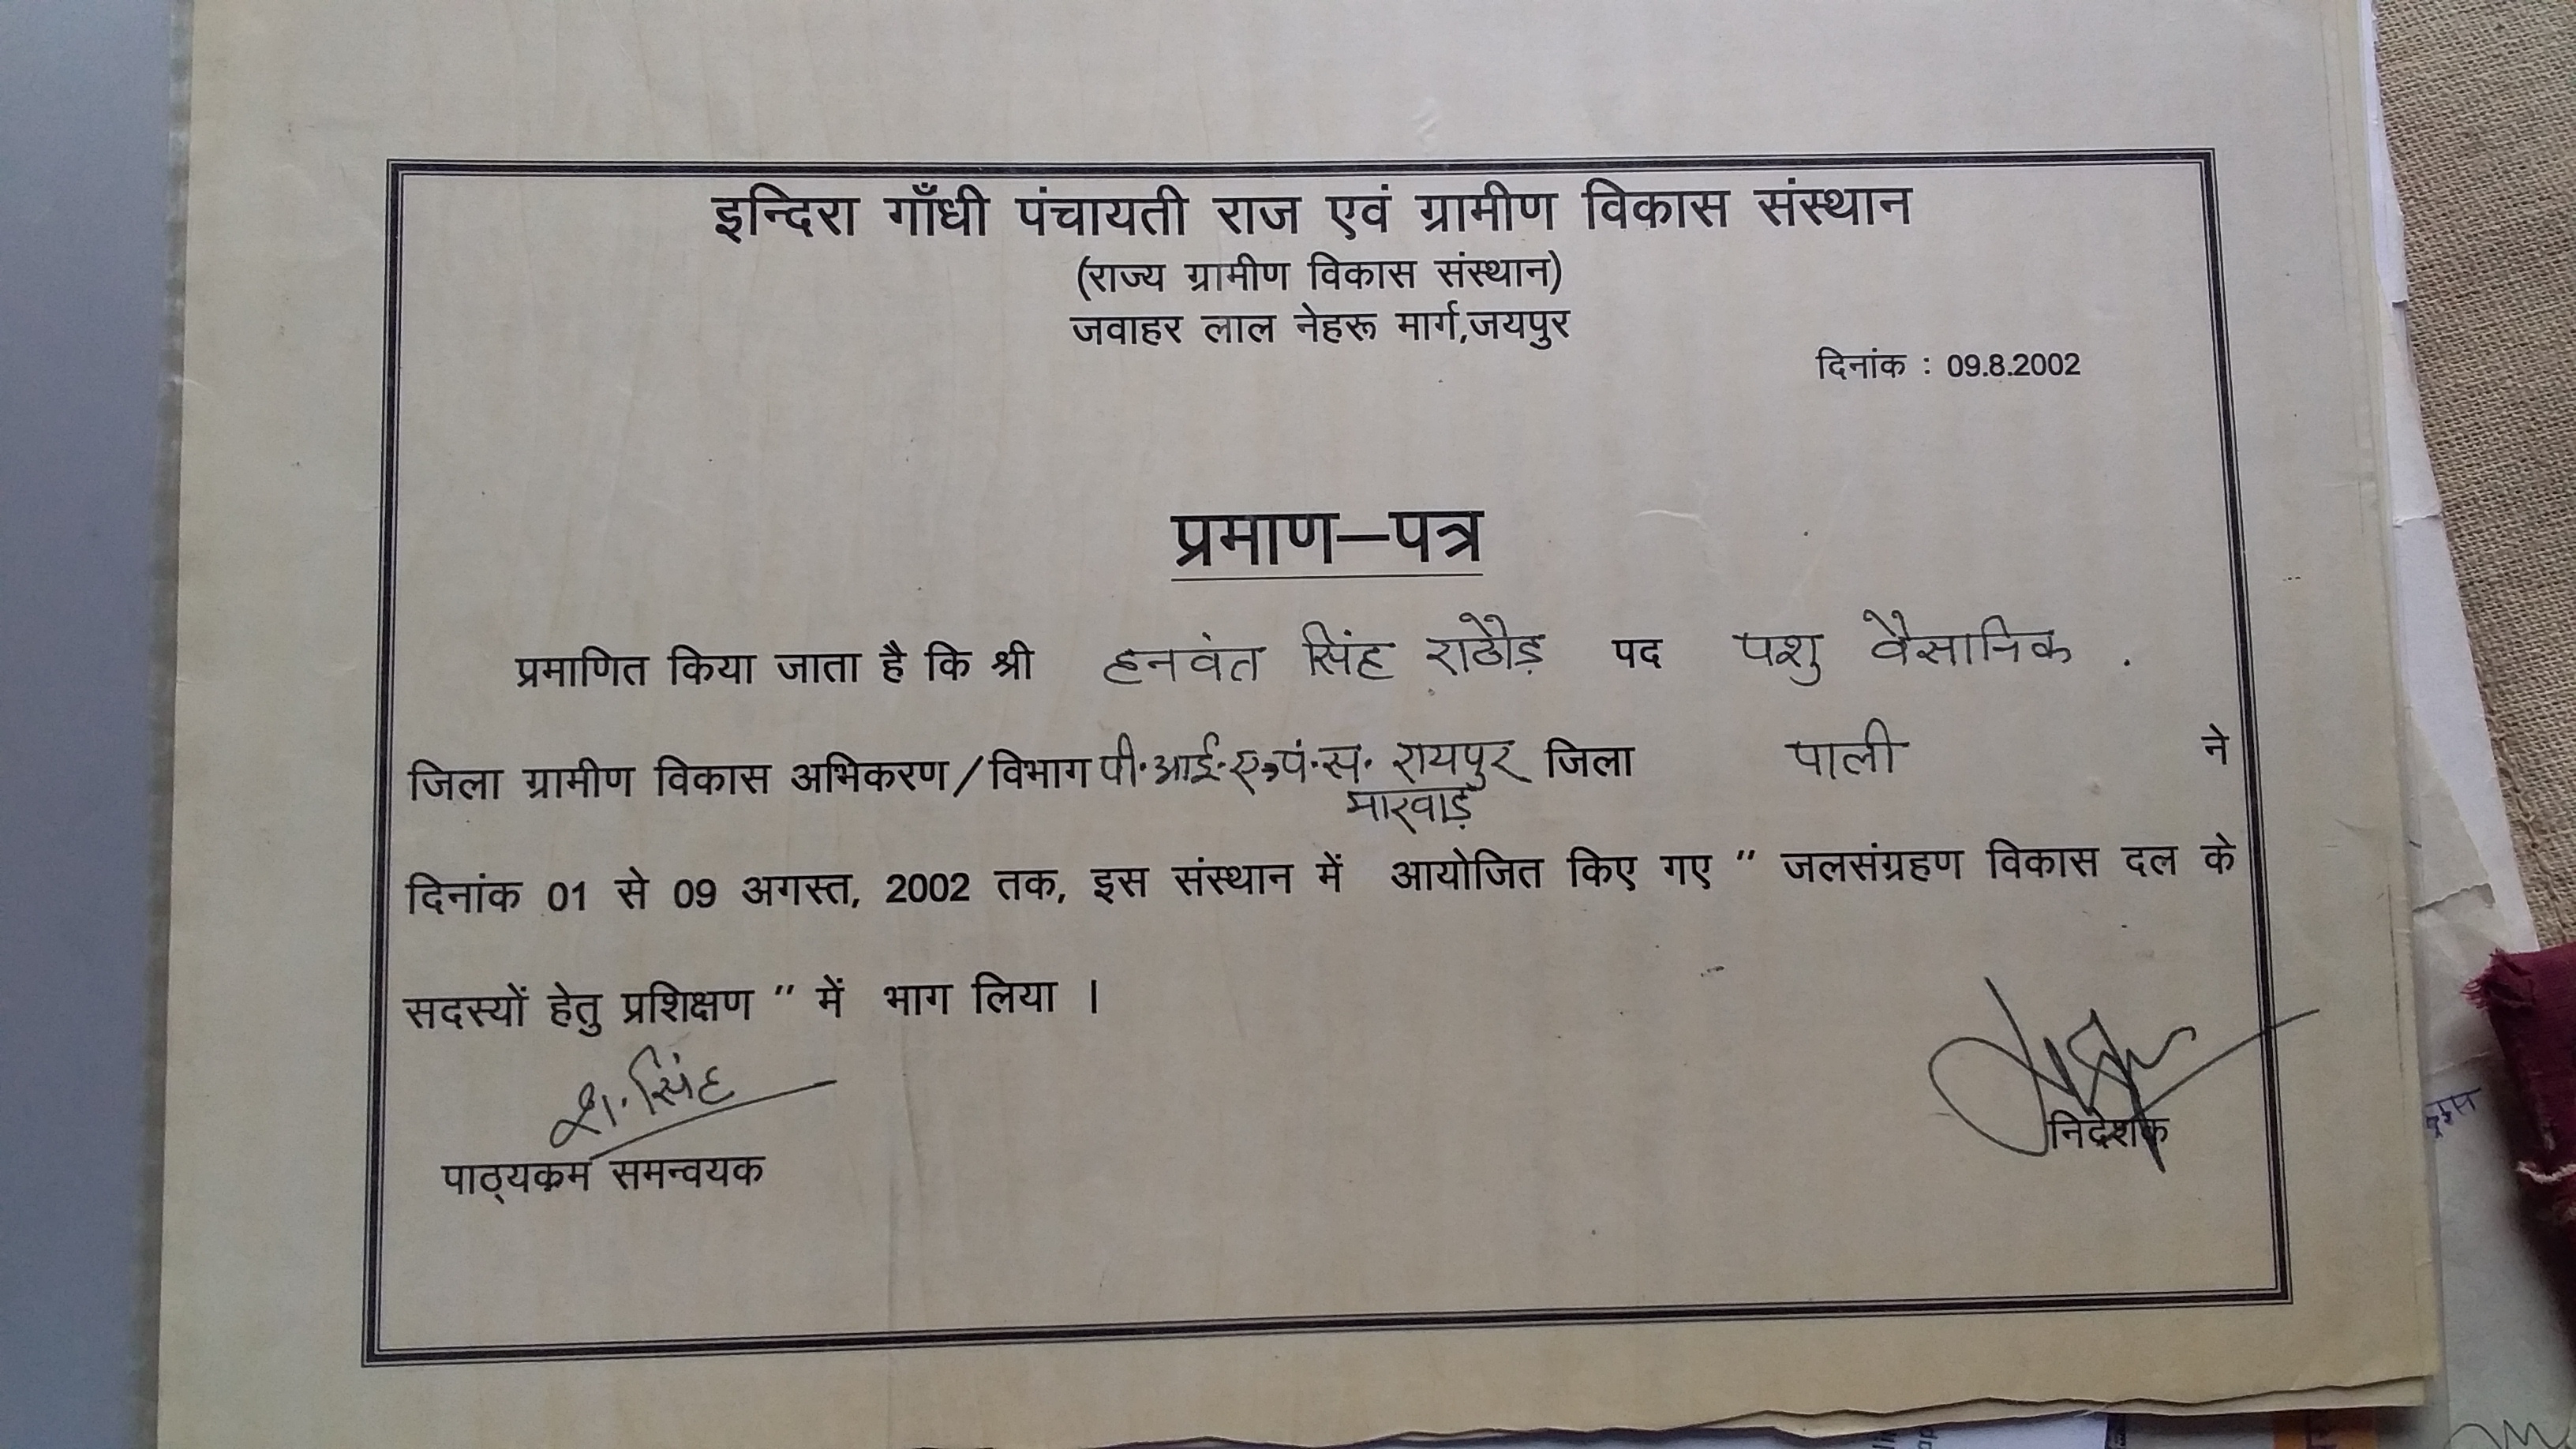 इन्दिरा गाँधी पंचायती राज एवं ग्रामीण विकास संस्थान
(राज्य ग्रामीण विकास संस्थान)
जवाहर लाल नेहरू मार्ग,जयपुर
दिनांक : 09.8.2002
प्रमाण–पत्र
प्रमाणित किया जाता है कि श्री हनवंत सिंह राठौड़ पद पशु वैसानिक .
जिला ग्रामीण विकास अभिकरण/विभाग पी.आई.ए., पं.स. रायपुर जिला पाली ने
मारवाड़
दिनांक 01 से 09 अगस्त, 2002 तक, इस संस्थान में आयोजित किए गए " जलसंग्रहण विकास दल के
सदस्यों हेतु प्रशिक्षण " में भाग लिया ।
श. सिंह
पाठ्यक्रम समन्वयक
निदेशक